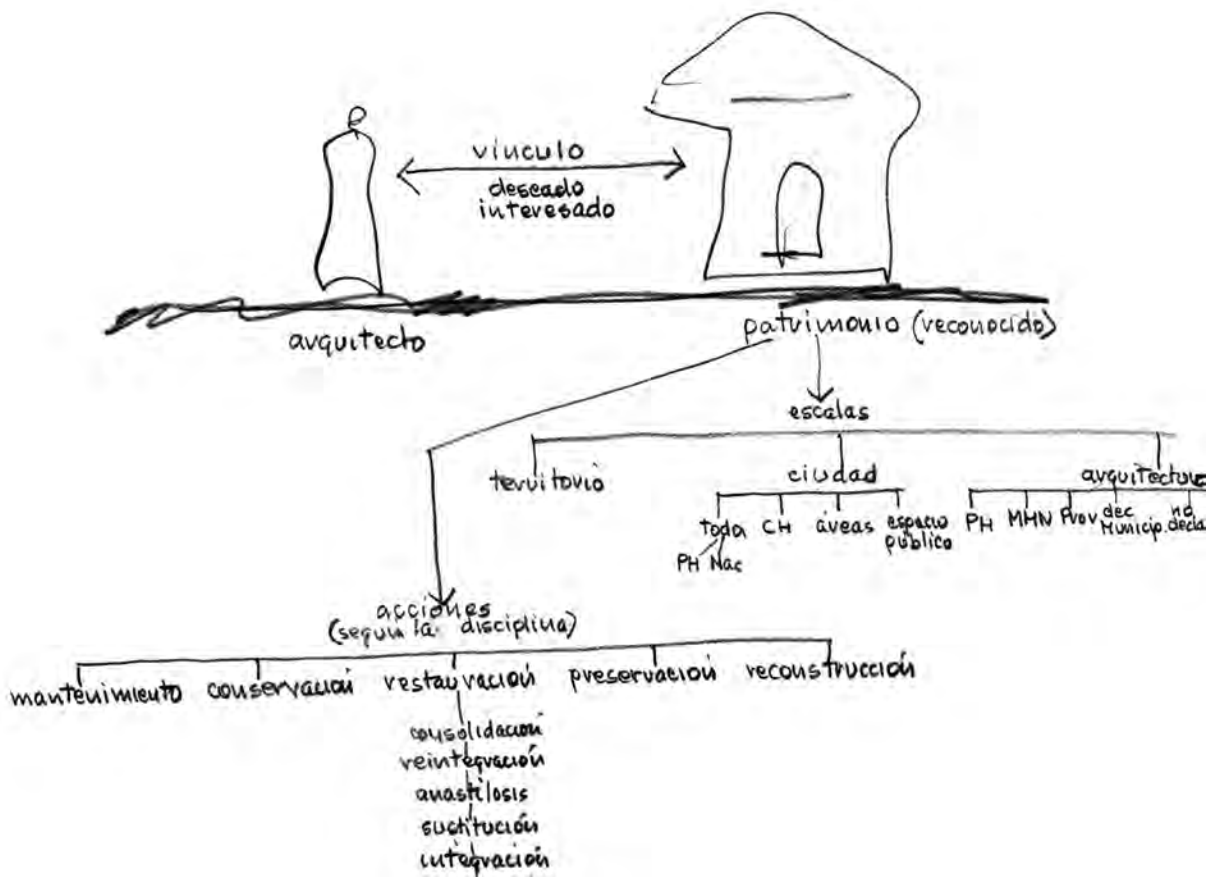 vínculo
deseado
interesado
arquitecto
patrimonio (reconocido)
escalas
territorio
ciudad
arquitectura
toda CH áreas espacio público
PH Nac
PH MHN Prov dec Municip. no decla
acciones
(según la disciplina)
mantenimiento conservación restauración preservación reconstrucción
consolidación
reintegración
anastilosis
sustitución
integración